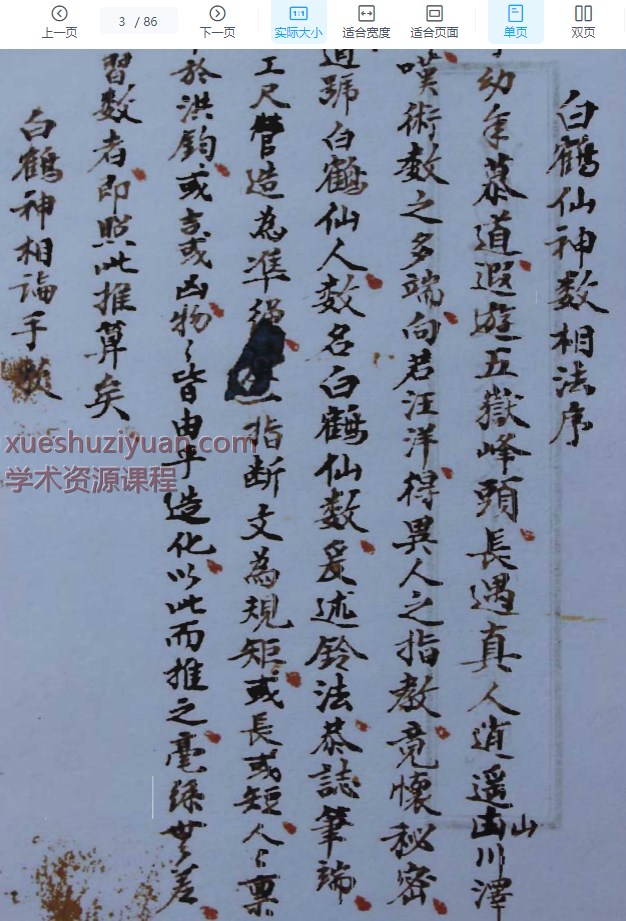 上一页
3 / 86
下一页
1:1
实际大小
适合宽度
适合页面
单页
双页
白鶴仙神数相法序
幼年慕道遐遊五嶽峰頭長遇真人逍遥山川澤
嘆術数之多端向若汪洋得異人之指教竟懷秘密
道號白鶴仙人数名白鶴仙数爰述鈴法恭誌筆端
工尺營造為準繩一指断文為規矩或長或短人々禀
於洪鈞或吉或凶物々皆由乎造化以此而推之毫絲無差
習数者即照此推算矣
白鶴神相論手
xueshuziyuan.com
学术资源课程